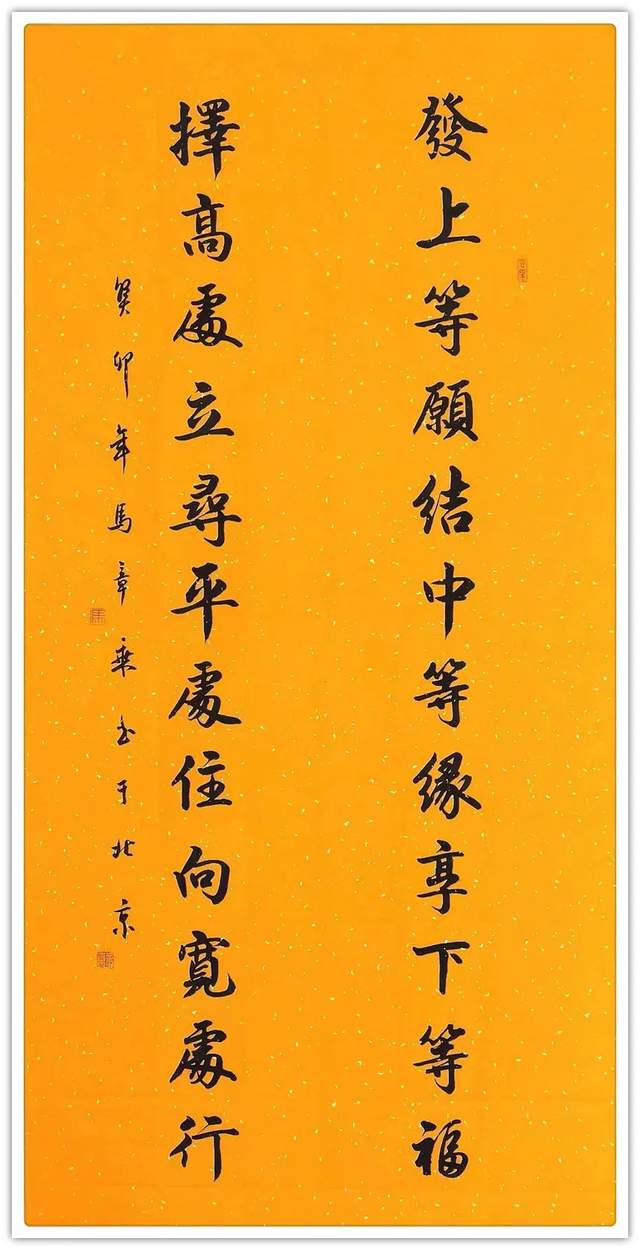 發上等願結中等緣享下等福
擇高處立尋平處住向寬處行
癸卯年馬章乘書于北京